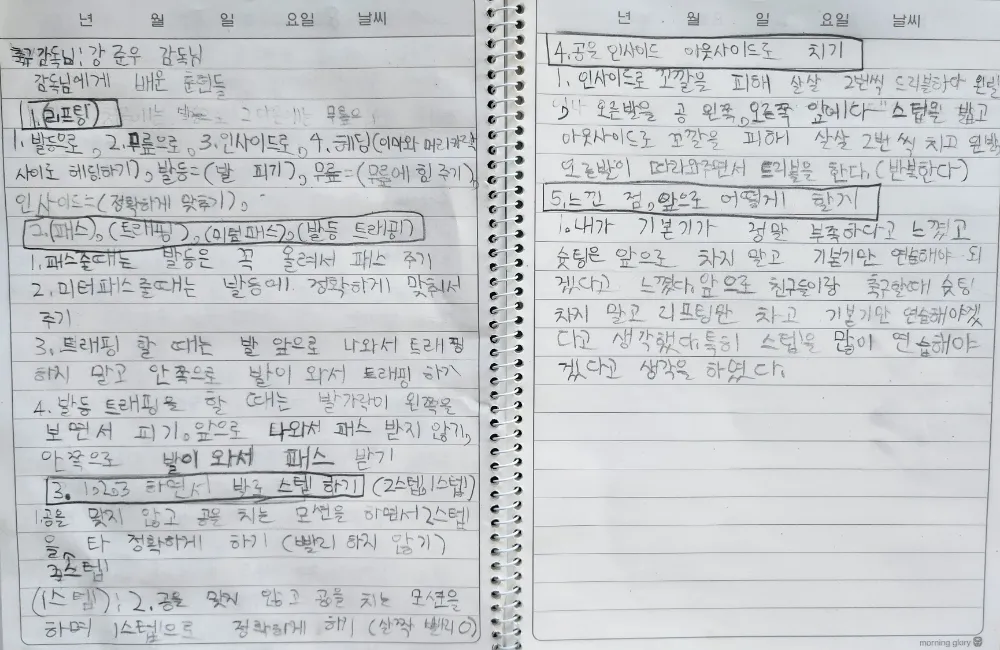 년 월 일 요일 날씨
축구감독님: 강준우 감독님
감독님에게 배운 훈련들
1.(리프팅)
1. 발등으로, 2.무릎으로, 3.인사이드로, 4.헤딩(이마와 머리카락
사이로 헤딩하기), 발등=(발 피기), 무릎=(무릎에 힘 주기),
인사이드=(정확하게 맞추기),
2.(패스), (트래핑), (미텀패스), (발등 트래핑)
1.패스줄때는 발등은 꼭 올려서 패스 주기
2.미터패스줄때는 발등에 정확하게 맞춰서
주기
3.트래핑 할 때는 발 앞으로 나와서 트래핑
하지 말고 안쪽으로 발이 와서 트래핑 하기
4.발등 트래핑을 할 때는 발가락이 왼쪽을
보면서 피기, 앞으로 나와서 패스 받지 않기,
안쪽으로 발이 와서 패스 받기
3. 1,2,3 하면서 바로 스텝 하기 (2스텝,1스텝)
1.공을 맞지 않고 공을 치는 모션을 하면서 2스텝
을 타 정확하게 하기 (빨리 하지 않기)
(1스텝): 2.공을 맞지 않고 공을 치는 모션을
하며 1스텝으로 정확하게 하기 (살짝 빨리 O)
년 월 일 요일 날씨
4.공을 인사이드 아웃사이드로 치기
1.인사이드로 꼬깔을 피해 살살 2번씩 드리블하다 왼발
오른발을 공 왼쪽,오른쪽 앞에다 스텝을 밟고
아웃사이드로 꼬깔을 피해 살살 2번 씩 치고 왼발
오른발이 따라와주면서 드리블을 한다.(반복한다)
5.느낀 점, 앞으로 어떻게 할지
1.내가 기본기가 정말 부족하다고 느꼈고
슛팅은 앞으로 차지 말고 기본기만 연습해야 되
겠다고 느꼈다.앞으로 친구들이랑 축구할때 슛팅
차지 말고 리프팅만 차고 기본기만 연습해야겠
다고 생각했다.특히 스텝을 많이 연습해야
겠다고 생각을 하였다.
morning glory